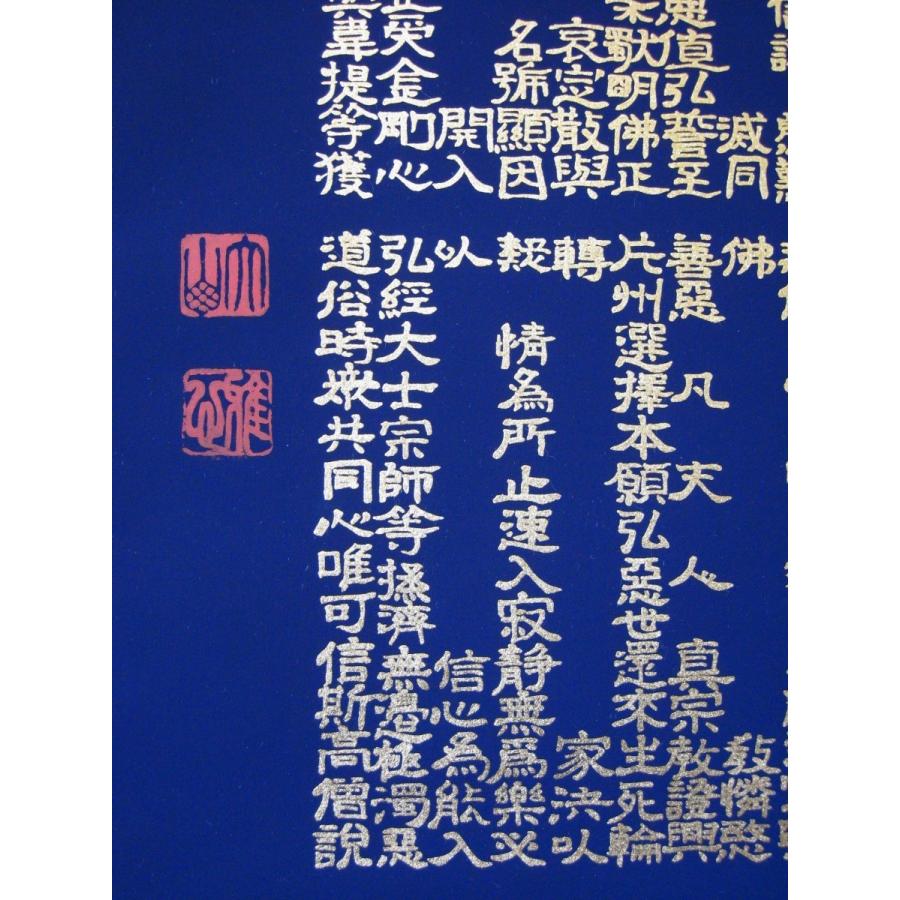 滅同
值弘誓至
獨明佛正
哀定散與
名號顯因
開入
正受金剛心
與韋提等獲
佛 教憐愍
善惡 凡夫人 真宗教證興
片州選擇本願弘惡世還來生死輪
轉 家決以
疑 情為所止速入寂靜無爲樂必
以 信心為能入
弘經大士宗師等拯濟無邊極濁惡
道俗時衆共同心唯可信斯高僧說